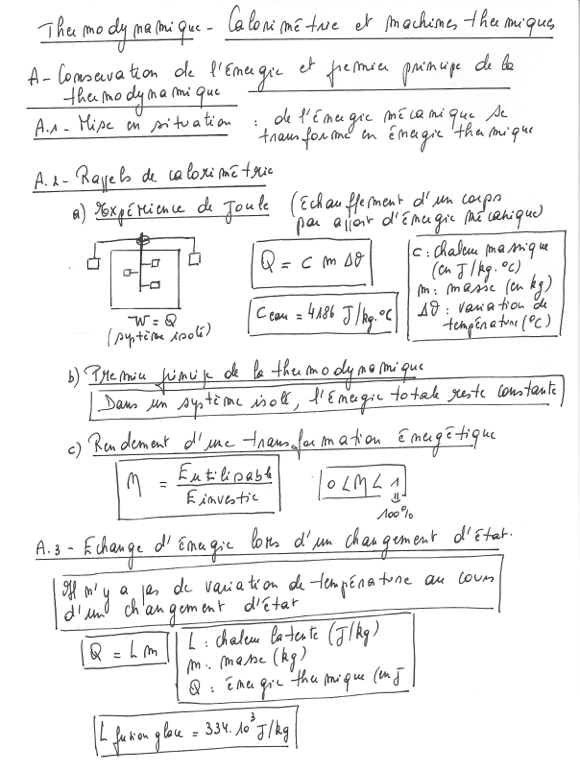 Thermodynamique - Calorimétrie et machines thermiques
A - Conservation de l'énergie et premier principe de la
thermodynamique
A.1 - Mise en situation : de l'énergie mécanique se
transforme en énergie thermique
A.2 - Rappels de calorimétrie
a) Expérience de Joule (Echauffement d'un corps
par apport d'énergie mécanique)
W = Q
(système isolé)
Q = c m Δθ
Ceau = 4186 J/kg.°C
c : chaleur massique
(en J/kg.°C)
m : masse (en kg)
Δθ : variation de
température (°C)
b) Premier principe de la thermodynamique
Dans un système isolé, l'énergie totale reste constante
c) Rendement d'une transformation énergétique
η = Eutilisable / Einvestie
0 < η < 1
⇓
100%
A.3 - Echange d'énergie lors d'un changement d'état.
Il n'y a pas de variation de température au cours
d'un changement d'état
Q = L m
L : chaleur latente (J/kg)
m : masse (kg)
Q : énergie thermique (en J
L fusion glace = 334.10³ J/kg